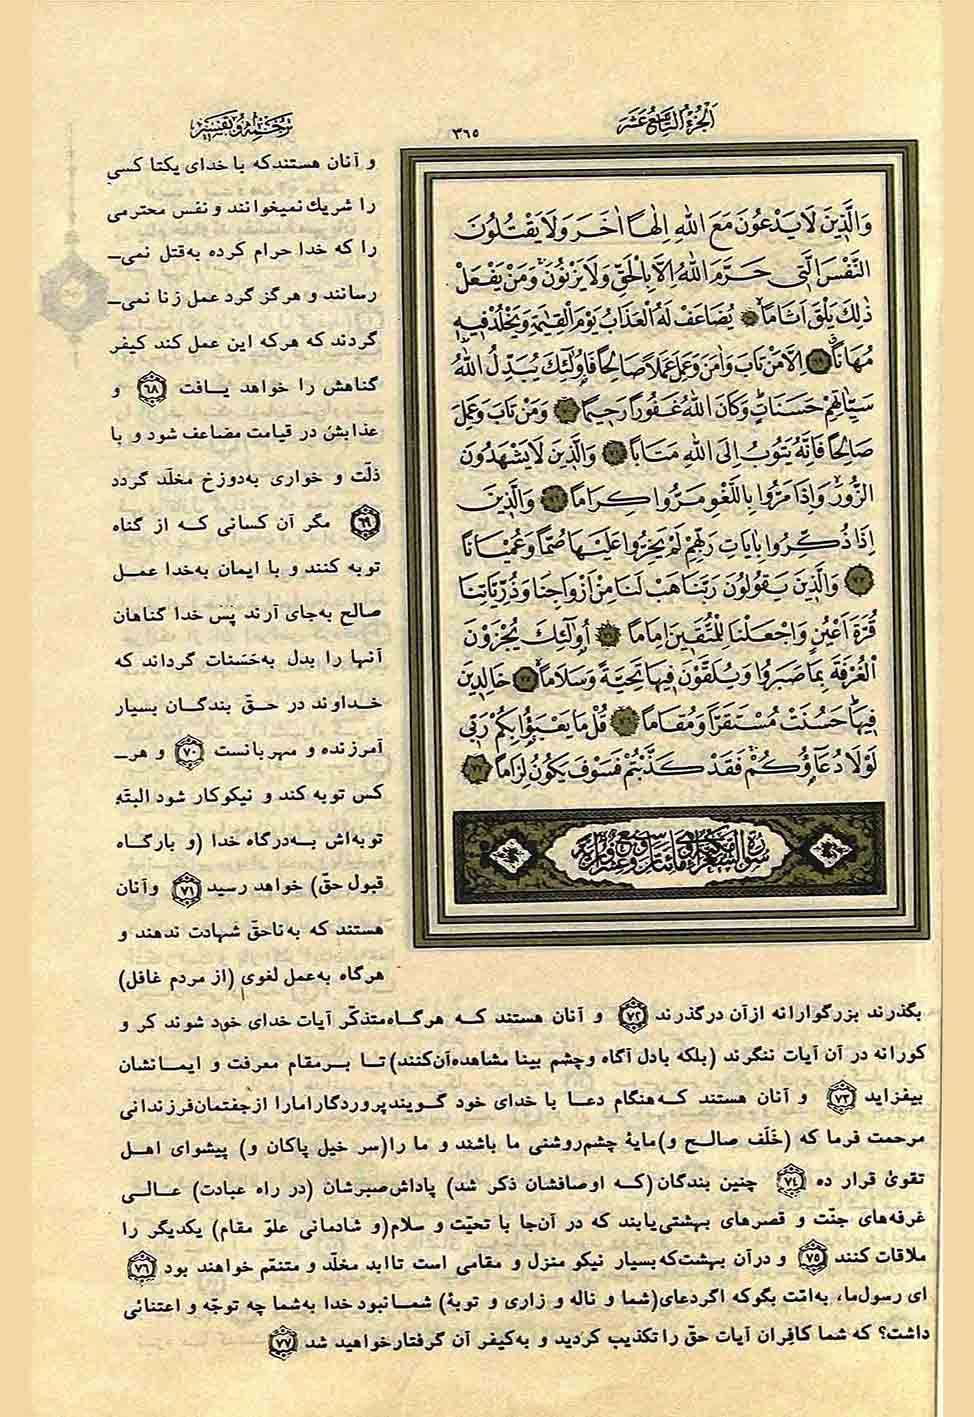 اَلْجُزْءُ التَّاسِعُ عَشَر
٣٦٥
ترجمه و تفسير
وَالَّذِينَ لَا يَدْعُونَ مَعَ اللّٰهِ اِلٰهًا اٰخَرَ وَلَا يَقْتُلُونَ
النَّفْسَ الَّتِى حَرَّمَ اللّٰهُ اِلَّا بِالْحَقِّ وَلَا يَزْنُونَ وَمَنْ يَفْعَلْ
ذٰلِكَ يَلْقَ اَثَامًا ۞ يُضَاعَفْ لَهُ الْعَذَابُ يَوْمَ الْقِيٰمَةِ وَيَخْلُدْ فِيهِ
مُهَانًا ۞ اِلَّا مَنْ تَابَ وَاٰمَنَ وَعَمِلَ عَمَلًا صَالِحًا فَاُولٰئِكَ يُبَدِّلُ اللّٰهُ
سَيِّئَاتِهِمْ حَسَنَاتٍ وَكَانَ اللّٰهُ غَفُورًا رَحِيمًا ۞ وَمَنْ تَابَ وَعَمِلَ
صَالِحًا فَاِنَّهُ يَتُوبُ اِلَى اللّٰهِ مَتَابًا ۞ وَالَّذِينَ لَا يَشْهَدُونَ
الزُّورَ وَاِذَا مَرُّوا بِاللَّغْوِ مَرُّوا كِرَامًا ۞ وَالَّذِينَ
اِذَا ذُكِّرُوا بِاٰيَاتِ رَبِّهِمْ لَمْ يَخِرُّوا عَلَيْهَا صُمًّا وَعُمْيَانًا
۞ وَالَّذِينَ يَقُولُونَ رَبَّنَا هَبْ لَنَا مِنْ اَزْوَاجِنَا وَذُرِّيَّاتِنَا
قُرَّةَ اَعْيُنٍ وَاجْعَلْنَا لِلْمُتَّقِينَ اِمَامًا ۞ اُولٰئِكَ يُجْزَوْنَ
الْغُرْفَةَ بِمَا صَبَرُوا وَيُلَقَّوْنَ فِيهَا تَحِيَّةً وَسَلَامًا ۞ خَالِدِينَ
فِيهَا حَسُنَتْ مُسْتَقَرًّا وَمُقَامًا ۞ قُلْ مَا يَعْبَؤُا بِكُمْ رَبِّى
لَوْلَا دُعَاؤُكُمْ فَقَدْ كَذَّبْتُمْ فَسَوْفَ يَكُونُ لِزَامًا ۞
سورة الشعراء مائتان و سبع و عشرون اية
و آنان هستندكه با خدای یکتا کسی
را شریك نمیخوانند و نفس محترمی
را که خدا حرام کرده به‌قتل نمی‌ـ
رسانند و هرگز گرد عمل زنا نمی‌ـ
گردند که هرکه این عمل کند کیفر
گناهش را خواهد یـافت ﴿٦٨﴾ و
عذابش در قیامت مضاعف شود و با
ذلّت و خواری به‌دوزخ مخلّد گردد
﴿٦٩﴾ مگر آن کسانی که از گناه
توبه کنند و با ایمان به‌خدا عمـل
صالح به‌جای آرند پس خدا گناهان
آنها را بدل به‌حَسَنات گرداند که
خداوند در حقّ بندگـان بسیار
آمرزنده و مهربانست ﴿٧٠﴾ و هرـ
کس توبه کند و نیکوکار شود البتّه
توبه‌اش بـه‌درگاه خدا (و بارگـاه
قبول حقّ) خواهد رسید ﴿٧١﴾ وآنان
هستند که به‌ناحقّ شهادت ندهند و
هرگاه به‌عمل لغوی (از مردم غافل)
بگذرند بزرگوارانه ازآن درگذرند ﴿٧٢﴾ و آنان هستند کـه هرگـاه‌متذکّر آیات خدای خود شوند کر و
کورانه در آن آیات ننگرند (بلکه بادل آگاه وچشم بینا مشاهده‌آن‌کنند) تـا بـرمقام معرفت و ایمـانشان
بیفزاید ﴿٧٣﴾ و آنان هستند که‌هنگام دعـا با خدای خود گـویندپروردگارامارا ازجفتمان‌فرزندانی
مرحمت فرما که (خَلَف صالـح و)مایهٔ چشم‌روشنی ما باشند و ما را(سر خیل پاکان و) پیشوای اهـل
تقوی قرار ده ﴿٧٤﴾ چنین بندگان(کـه اوصافشان ذکر شد) پاداش‌صبرشان (در راه عبادت) عـالـی
غرفه‌های جنّت و قصرهای بهشتی‌یابند که در آن‌جا با تحیّت و سلام(و شادمانی علوّ مقام) یکدیگر را
ملاقات کنند ﴿٧٥﴾ و درآن بهشت‌که‌بسیار نیکو منزل و مقامی است تاابد مخلّد و متنعّم خواهند بود ﴿٧٦﴾
ای رسول‌ما، به‌امّت بگوکه اگردعای(شما و ناله و زاری و توبهٔ) شمـانبود خدا به‌شما چه توجّه و اعتنائی
داشت؟ که شما کافران آیات حقّ را تکذیب کردید و به‌کیفر آن گرفتارخواهید شد ﴿٧٧﴾